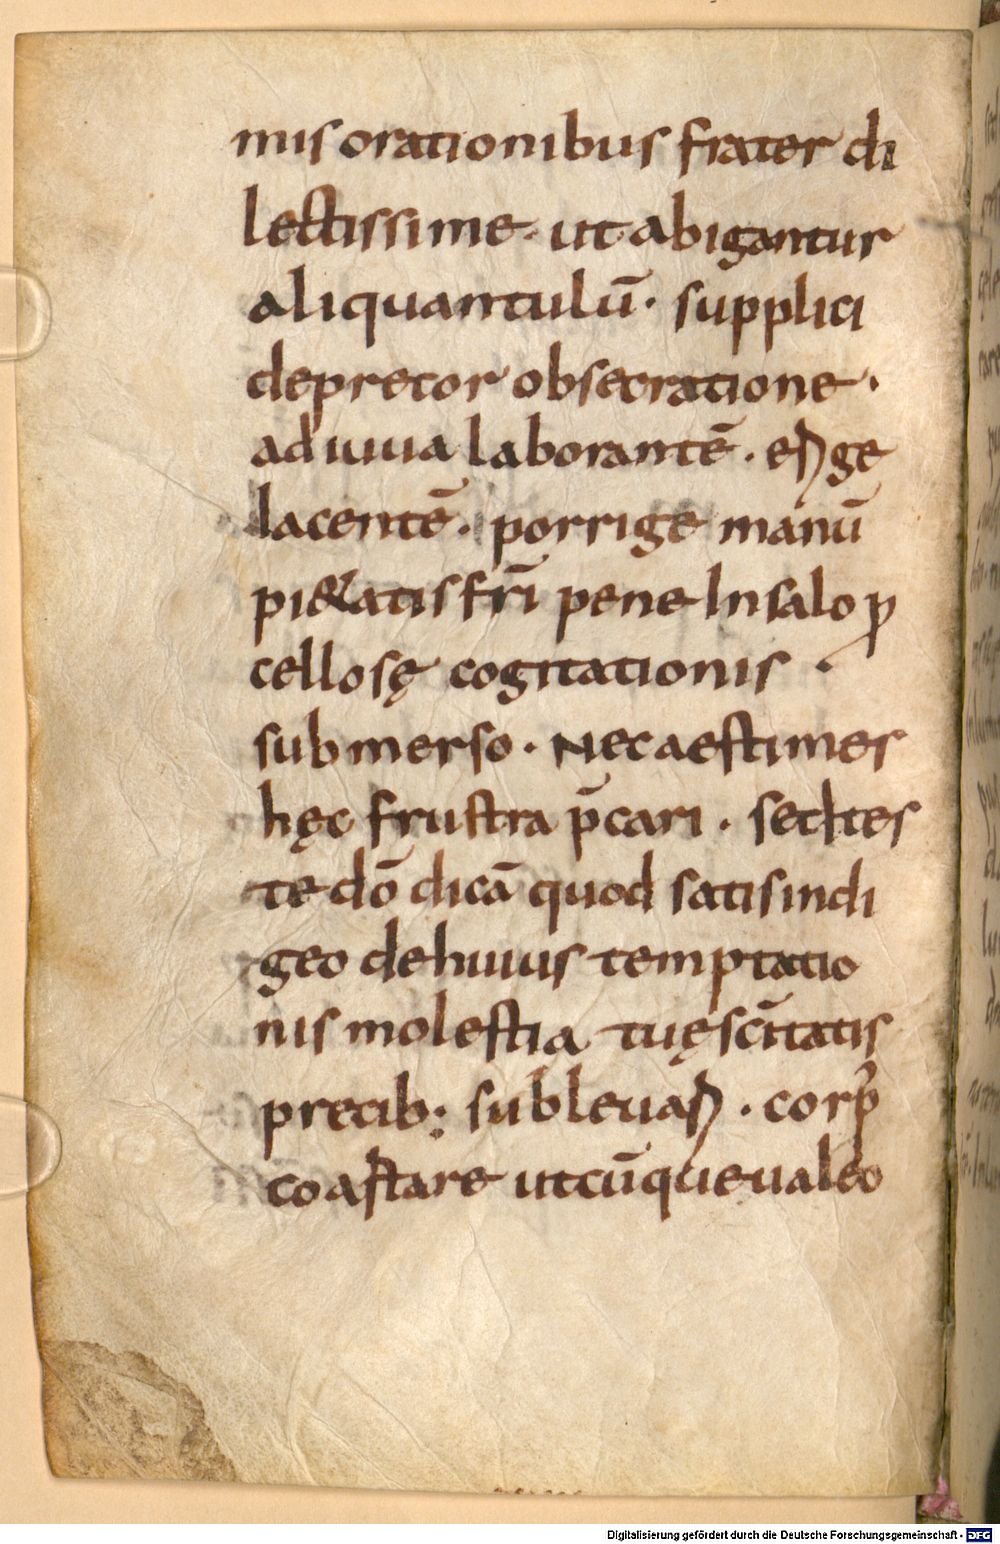 mis orationibus frater di
lectissime · ut abigantur
aliquantulū · supplici
deprecor obsecratione ·
adiuua laborantē · erige
iacentē · porrige manū
pi&atis fr̄i pene In salo p
cellosę cogitationis ·
submerso · Nec aestimes
hęc frustra p̄cari · sed tes
te dō dicā quod satis indi
geo de huius temptatio
nis molestia tuę sc̄itatis
precib; subleuari · corp
co astare utcūque ualeo
Digitalisierung gefördert durch die Deutsche Forschungsgemeinschaft - DFG